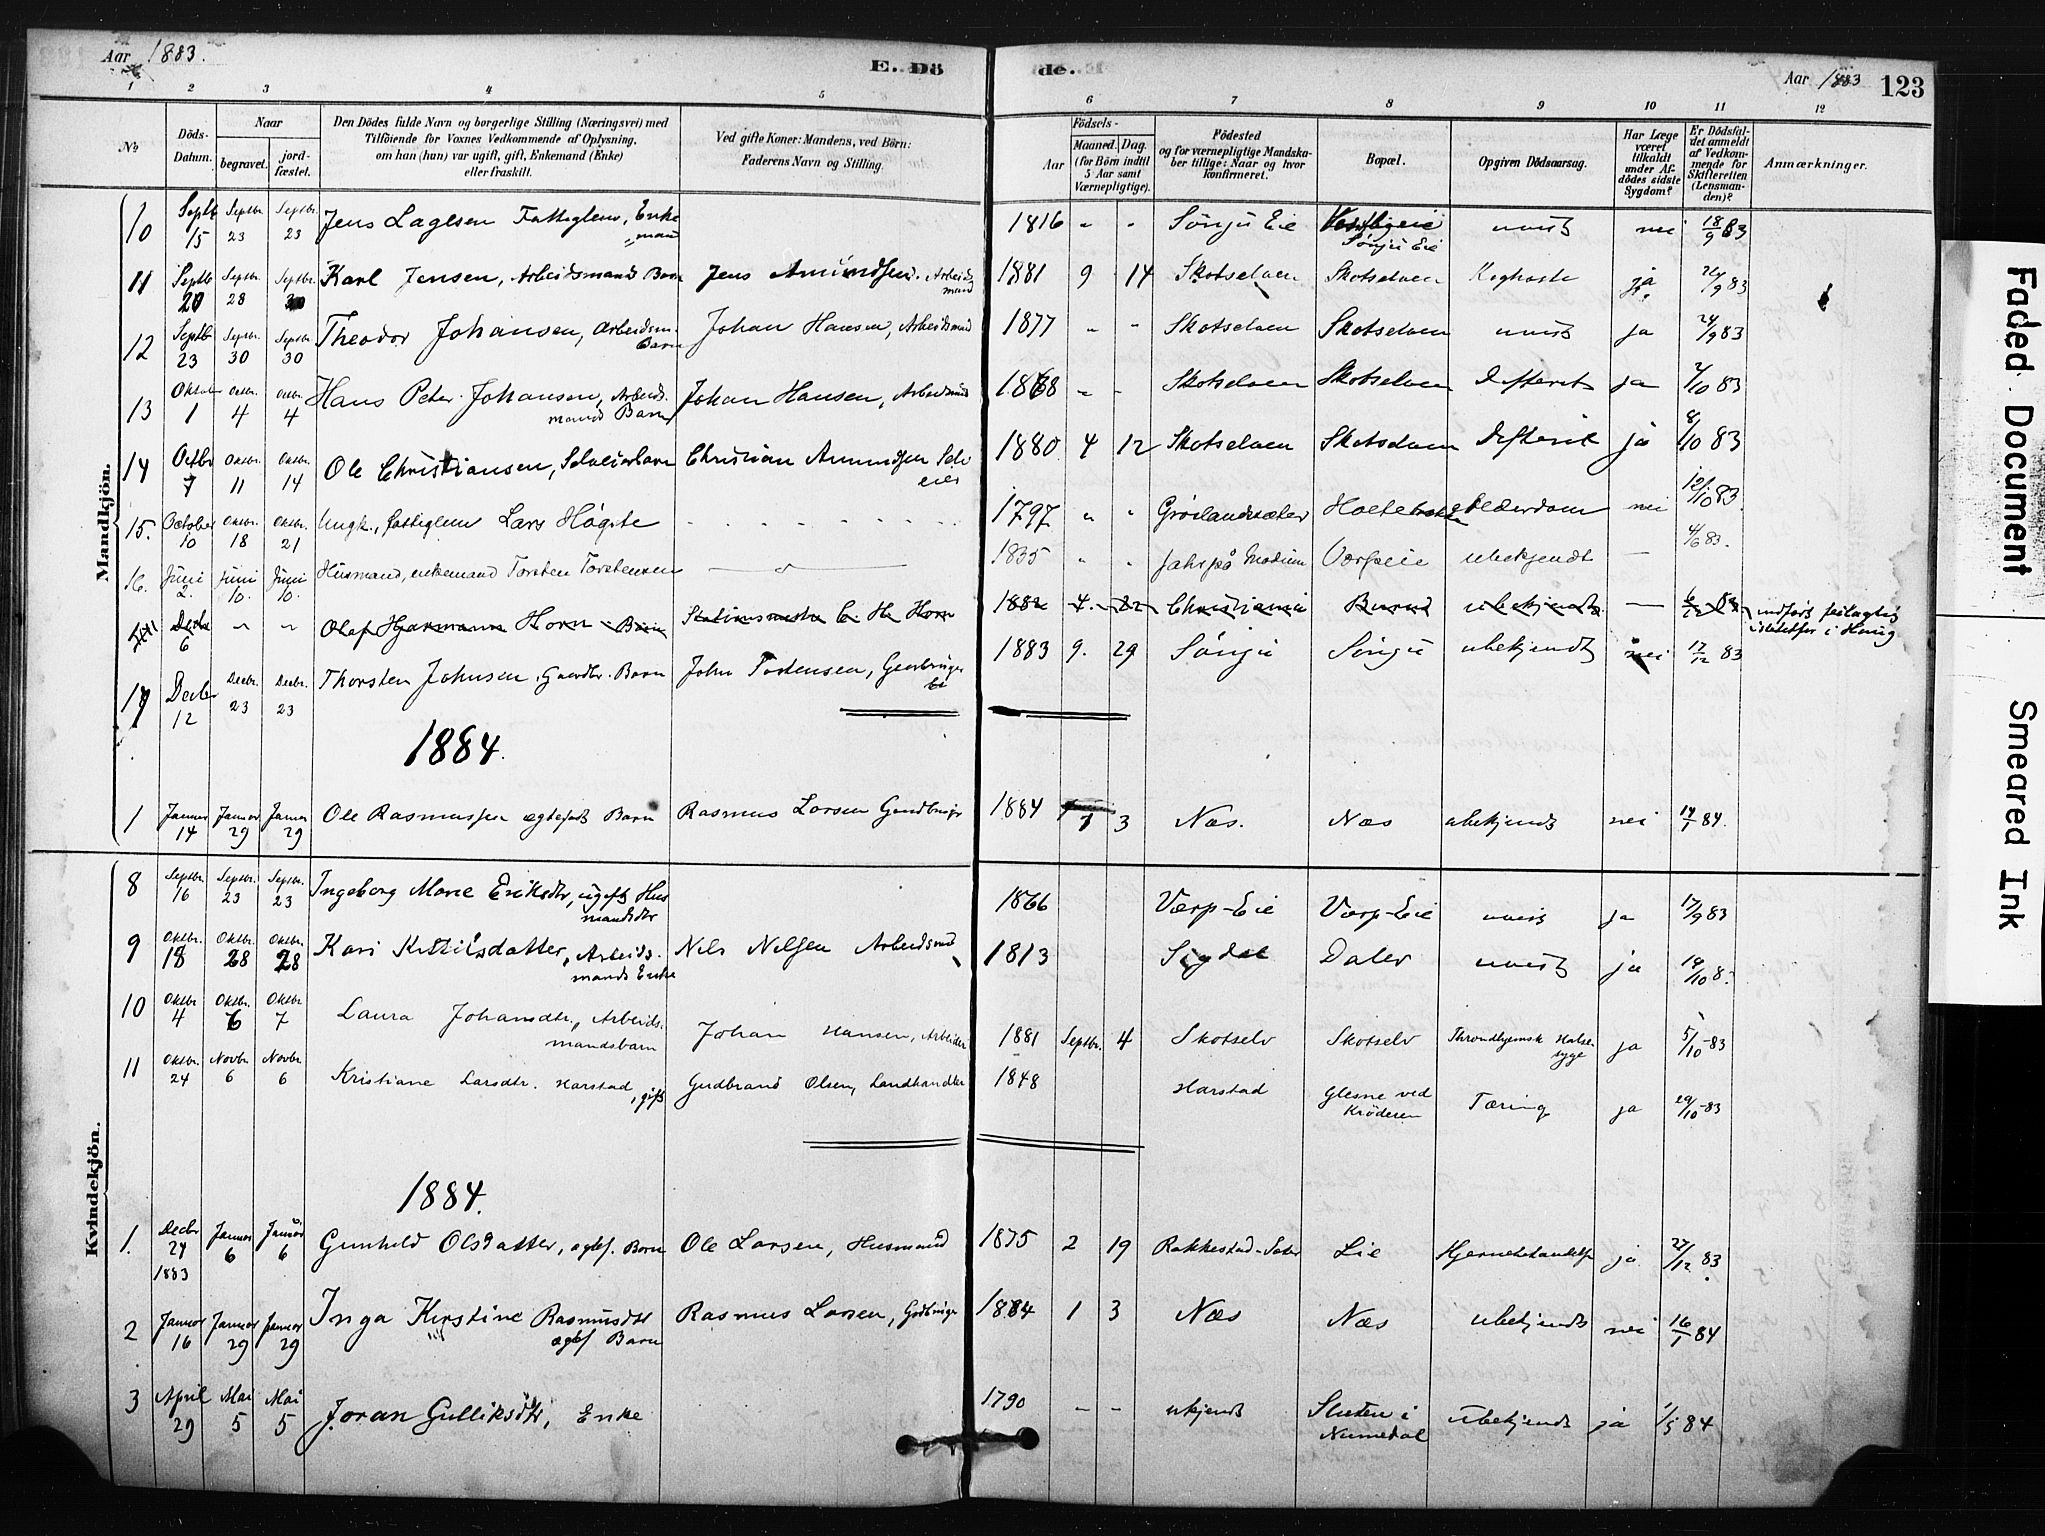 Aar 1883.
E. Dö de.
Aar 1883 123
1 2 3 4 5 6 7 8 9 10 11 12
No
Döds-Datum.
Naar
begravet.
jord-fæstet.
Den Dödes fulde Navn og borgerlige Stilling (Næringsvei) med
Tilföiende for Voxnes Vedkommende af Oplysning,
om han (hun) var ugift, gift, Enkemand (Enke)
eller fraskilt.
Ved gifte Koner: Mandens, ved Börn:
Faderens Navn og Stilling.
Födsels-
Aar
Maaned. Dag.
(for Börn indtil
5 Aar samt
Værnepligtige).
Födested
og for værnepligtige Mandska-
ber tillige: Naar og hvor
konfirmeret.
Bopæl.
Opgiven Dödsaarsag.
Har Læge
været
tilkaldt
under Af-
dödes sidste
Sygdom?
Er Dödsfal-
det anmeldt
af Vedkom-
mende for
Skifteretten
(Lensman-
den)?
Anmærkninger.
Mandkjön.
10 Septb 15 Septbr. 23 Septbr. 23 Jens Lagesen Fattiglem, Enkemand 1816 " " Sönju Eie Sönju Eie uvist nei 18/9 83
11 Septb Septbr. 28 Septbr. 30 Karl Jensen, Arbeidsmands Barn Jens Amundsen. Arbeidsmand 1881 9 14 Skotselven Skotselven Kighoste ja 83
12 Septb 23 Septbr. 30 Septbr. 30 Theodor Johansen, Arbeidsm. Barn Johan Hansen, Arbeidsmd 1877 " " Skotselven Skotselven uvist ja 24/9 83
13 Oktober 1 Octbr. 4 Octbr. 4 Hans Peter Johansen, Arbeidsmands Barn Johan Hansen, Arbeidsmd 1868 " " Skotselven Skotselven Difterit ja /10 83
14 Octbr 7 Oktbr. 11 Oktbr. 14 Ole Christiansen, Selveierbarn Christian Amundsen Selveier 1880 4 12 Skotselven Skotselven Difterit ja 8/10 83
15. October 10 Oktbr. 18 Oktbr. 21 Ungk., fattiglem Lars Högste 1797 " " Alderdom nei 12/10 83
16. Juni 2. Juni 10. Juni 10. Husmand, enkemand Torsten Torstensen 1835 " " Jahr på Modum Værpeie ubekjendt — 4/6 83.
Decbr 6 " " Olaf Hjarmann Horn Barn Stationsmester C. H. Horn 1882 4. 22 Christiania Burud ubekjendt — indført feilagtig istedetfor i Haug
17 Decbr 12 Decbr. 23 Decbr. 23 Thorsten Johnsen, Gaardbr. Barn John Torstensen, Gaardbruger 1883 9. 29 Sönju Sönju ubekjendt nei 17/12 83
1884.
1 Januar 14 Januar 29 Januar 29 Ole Rasmussen ægtefødt Barn Rasmus Larsen Gaardbruger 1884 1 3 Næs. Næs ubekjendt nei 14/1 84.
Kvindekjön.
8 Septbr. 16 Septbr. 23 Septbr. 23 Ingeborg Marie Eriksdtr, ugift Husmandsdtr 1866 Værp-Eie Værp-Eie uvist ja 17/9 83
9 Oktbr. 18 Oktbr. 28 Oktbr. 28 Kari Kittilsdatter, Arbeidsmands Enke Nils Nilsen Arbeidsmd 1813 Sigdal Daler uvist ja 19/10 83
10 Oktbr. 4 Oktbr. 6 Oktbr. 7 Laura Johansdtr., Arbeidsmandsbarn Johan Hansen, Arbeider 1881 Septbr. 4 Skotselv Skotselv Throndhjemsk Halsesyge ja 5/10-83
11 Oktbr. 24 Novbr. 6 Novbr. 6 Kristiane Larsdtr. Harstad, gift Gudbrand Olsen, Landhandler 1848 Harstad Glesne ved Krøderen Tæring ja 29/10-83
1884.
1. Decbr 24 1883 Januar 6 Januar 6 Gunhild Olsdatter, ægtef. Barn Ole Larsen, Husmand 1875 2 19 Rakkestad-Sæter Lie Hjernebetændelse ja 27/12 83
2 Januar 16 Januar 29 Januar 29 Inga Kirstine Rasmusdtr ægtef Barn Rasmus Larsen, Grdbruger 1884 1 3 Næs Næs ubekjendt nei 16/1 84
3 April 29 Mai 5 Mai 5 Joran Gulliksdtr, Enke 1790 - - ukjendt i Numedal ubekjendt ja 1/5 84
Faded Document
Smeared Ink